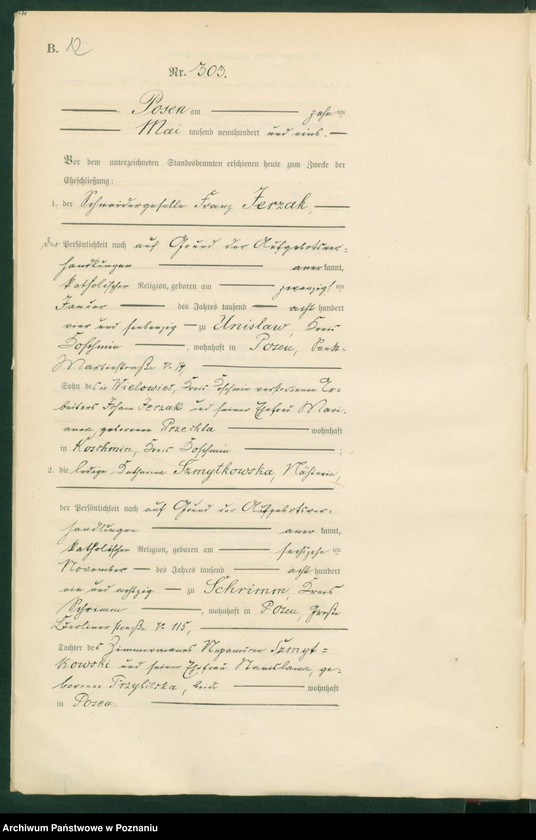 B. 12
Nr. 303.
Posen am zehnten
Mai tausend neunhundert und eins.
Vor dem unterzeichneten Standesbeamten erschienen heute zum Zwecke der
Eheschließung:
1. der Schneidergeselle Franz Jerzak,
der Persönlichkeit nach auf Grund der Aufgebotsver-
handlungen anerkannt,
katholischer Religion, geboren am zwanzigsten
Januar des Jahres tausend acht hundert
vier und siebenzig zu Unislaw, Kreis
Koschmin, wohnhaft in Posen, Sankt-
Martinstraße No 14
Sohn des in Wielowies, Kreis Koschmin verstorbenen Ar-
beiters Johann Jerzak und seiner Ehefrau Mari-
anna geborenen Przechta wohnhaft
in Koschmin, Kreis Koschmin ;
2. die ledige Katharina Szmytkowska, Näherin,
der Persönlichkeit nach auf Grund der Aufgebotsver-
handlungen anerkannt,
katholischer Religion, geboren am sechszehnten
November des Jahres tausend acht hundert
ein und achtzig zu Schrimm, Kreis
Schrimm, wohnhaft in Posen, Große
Berlinerstraße No 115,
Tochter des Zimmermannes Nepomucen Szmyt=
kowski und seiner Ehefrau Stanislawa, ge-
borene Przybilska, beide wohnhaft
in Posen.
Archiwum Państwowe w Poznaniu